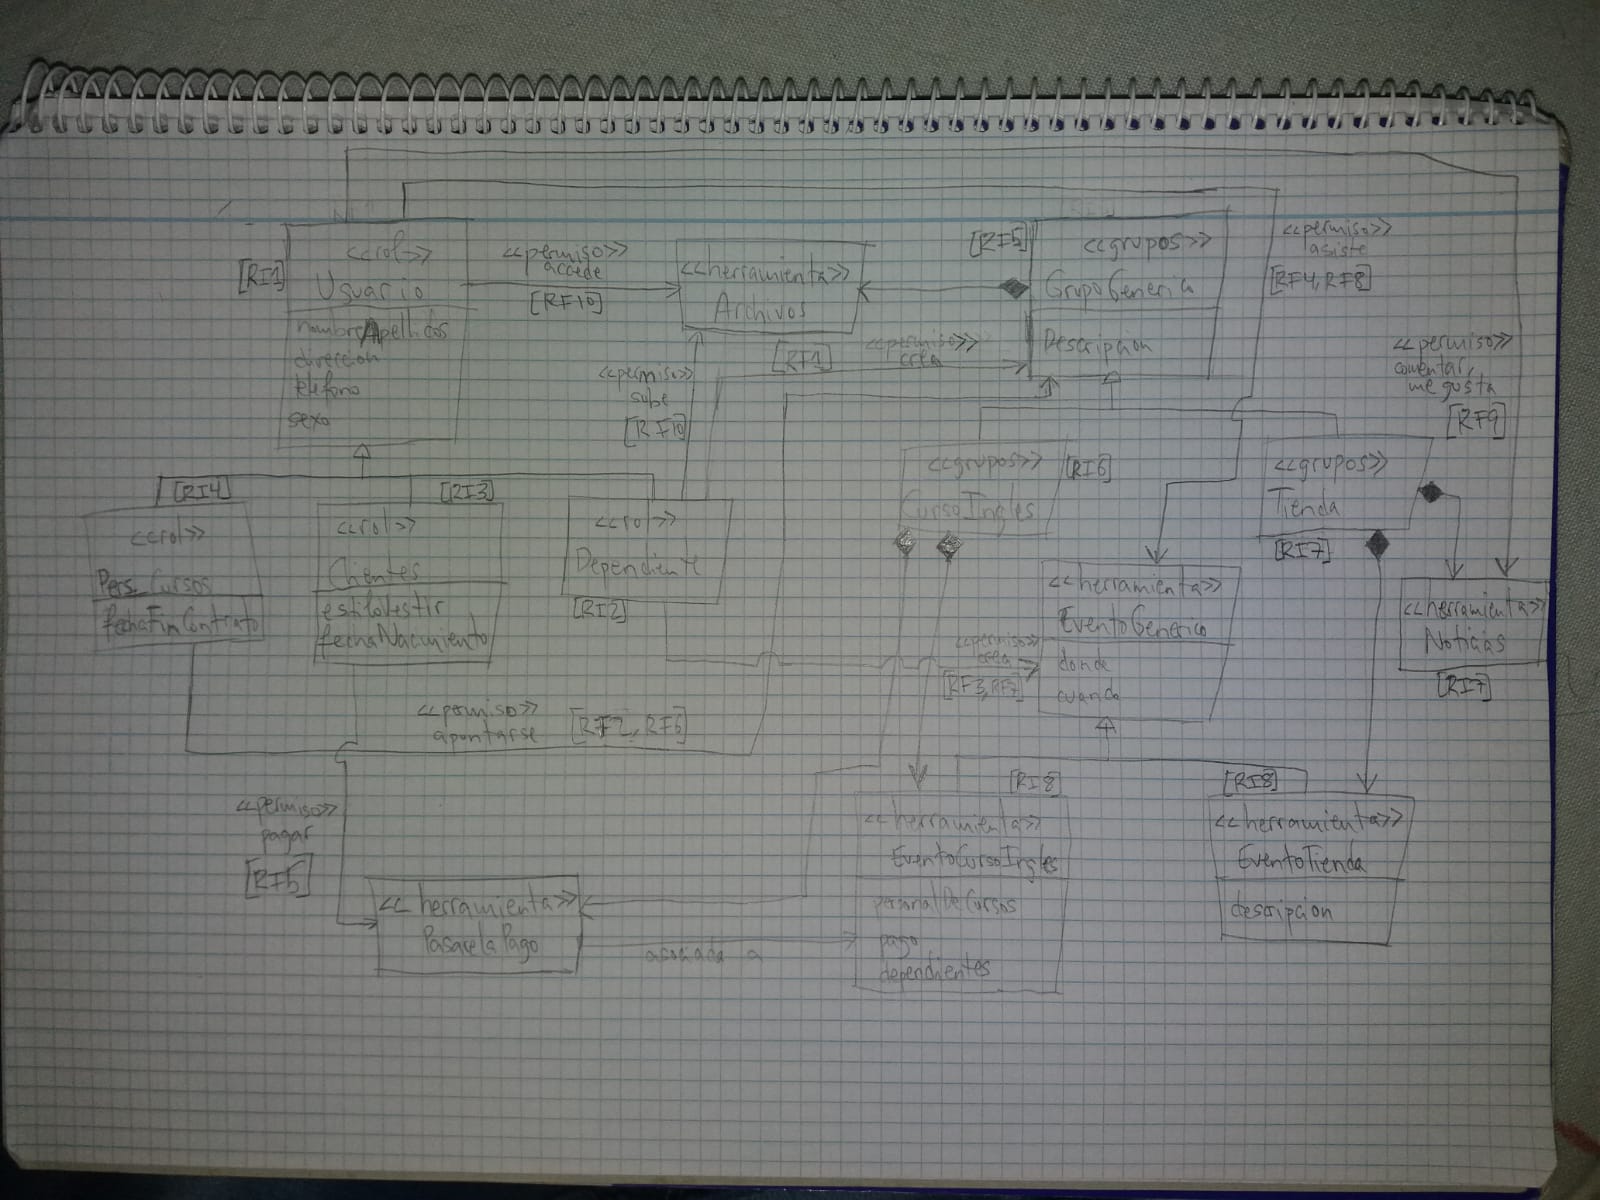 <<rol>>
Usuario
[RI1]
nombreApellidos
direccion
telefono
sexo
<<permiso>>
accede
[RF10]
<<herramienta>>
Archivos
[RI5]
<<grupos>>
GrupoGenerica
Descripcion
<<permiso>>
asiste
[RF4, RF8]
<<permiso>>
crea
[RF1]
<<permiso>>
sube
[RF10]
<<permiso>>
comentar,
me gusta
[RF9]
[RI4]
<<rol>>
Pers_Cursos
fechaFinContrato
[RI3]
<<rol>>
Clientes
estiloVestir
fechaNacimiento
<<rol>>
Dependiente
[RI2]
<<grupos>>
CursoIngles
[RI6]
<<grupos>>
Tienda
[RI7]
<<herramienta>>
EventoGenerico
donde
cuando
<<permiso>>
crea
[RF3, RF7]
<<herramienta>>
Noticias
[RI7]
<<permiso>>
apontarse
[RF2, RF6]
<<permiso>>
pagar
[RF5]
<<herramienta>>
PasarelaPago
asociada a
[RI8]
<<herramienta>>
EventoCursoIngles
personalDeCursos
pago
dependientes
[RI8]
<<herramienta>>
EventoTienda
descripcion